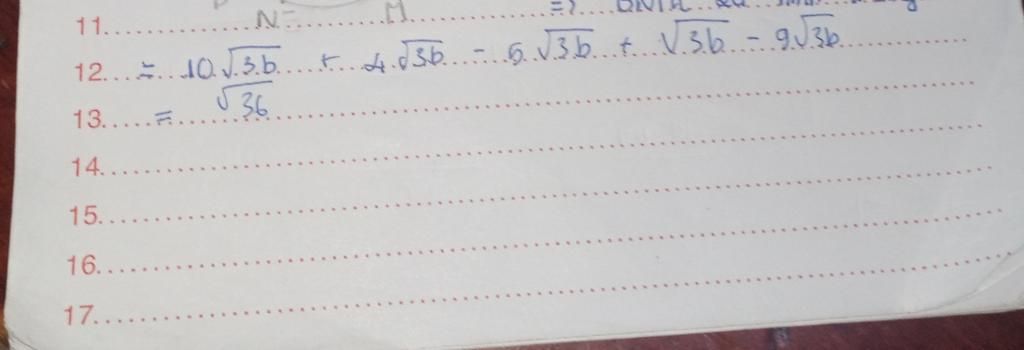 11. N = M =>
12. = 10√3b + 4√3b - 5√3b + √3b - 9√3b
13. = √3b
14.
15.
16.
17.